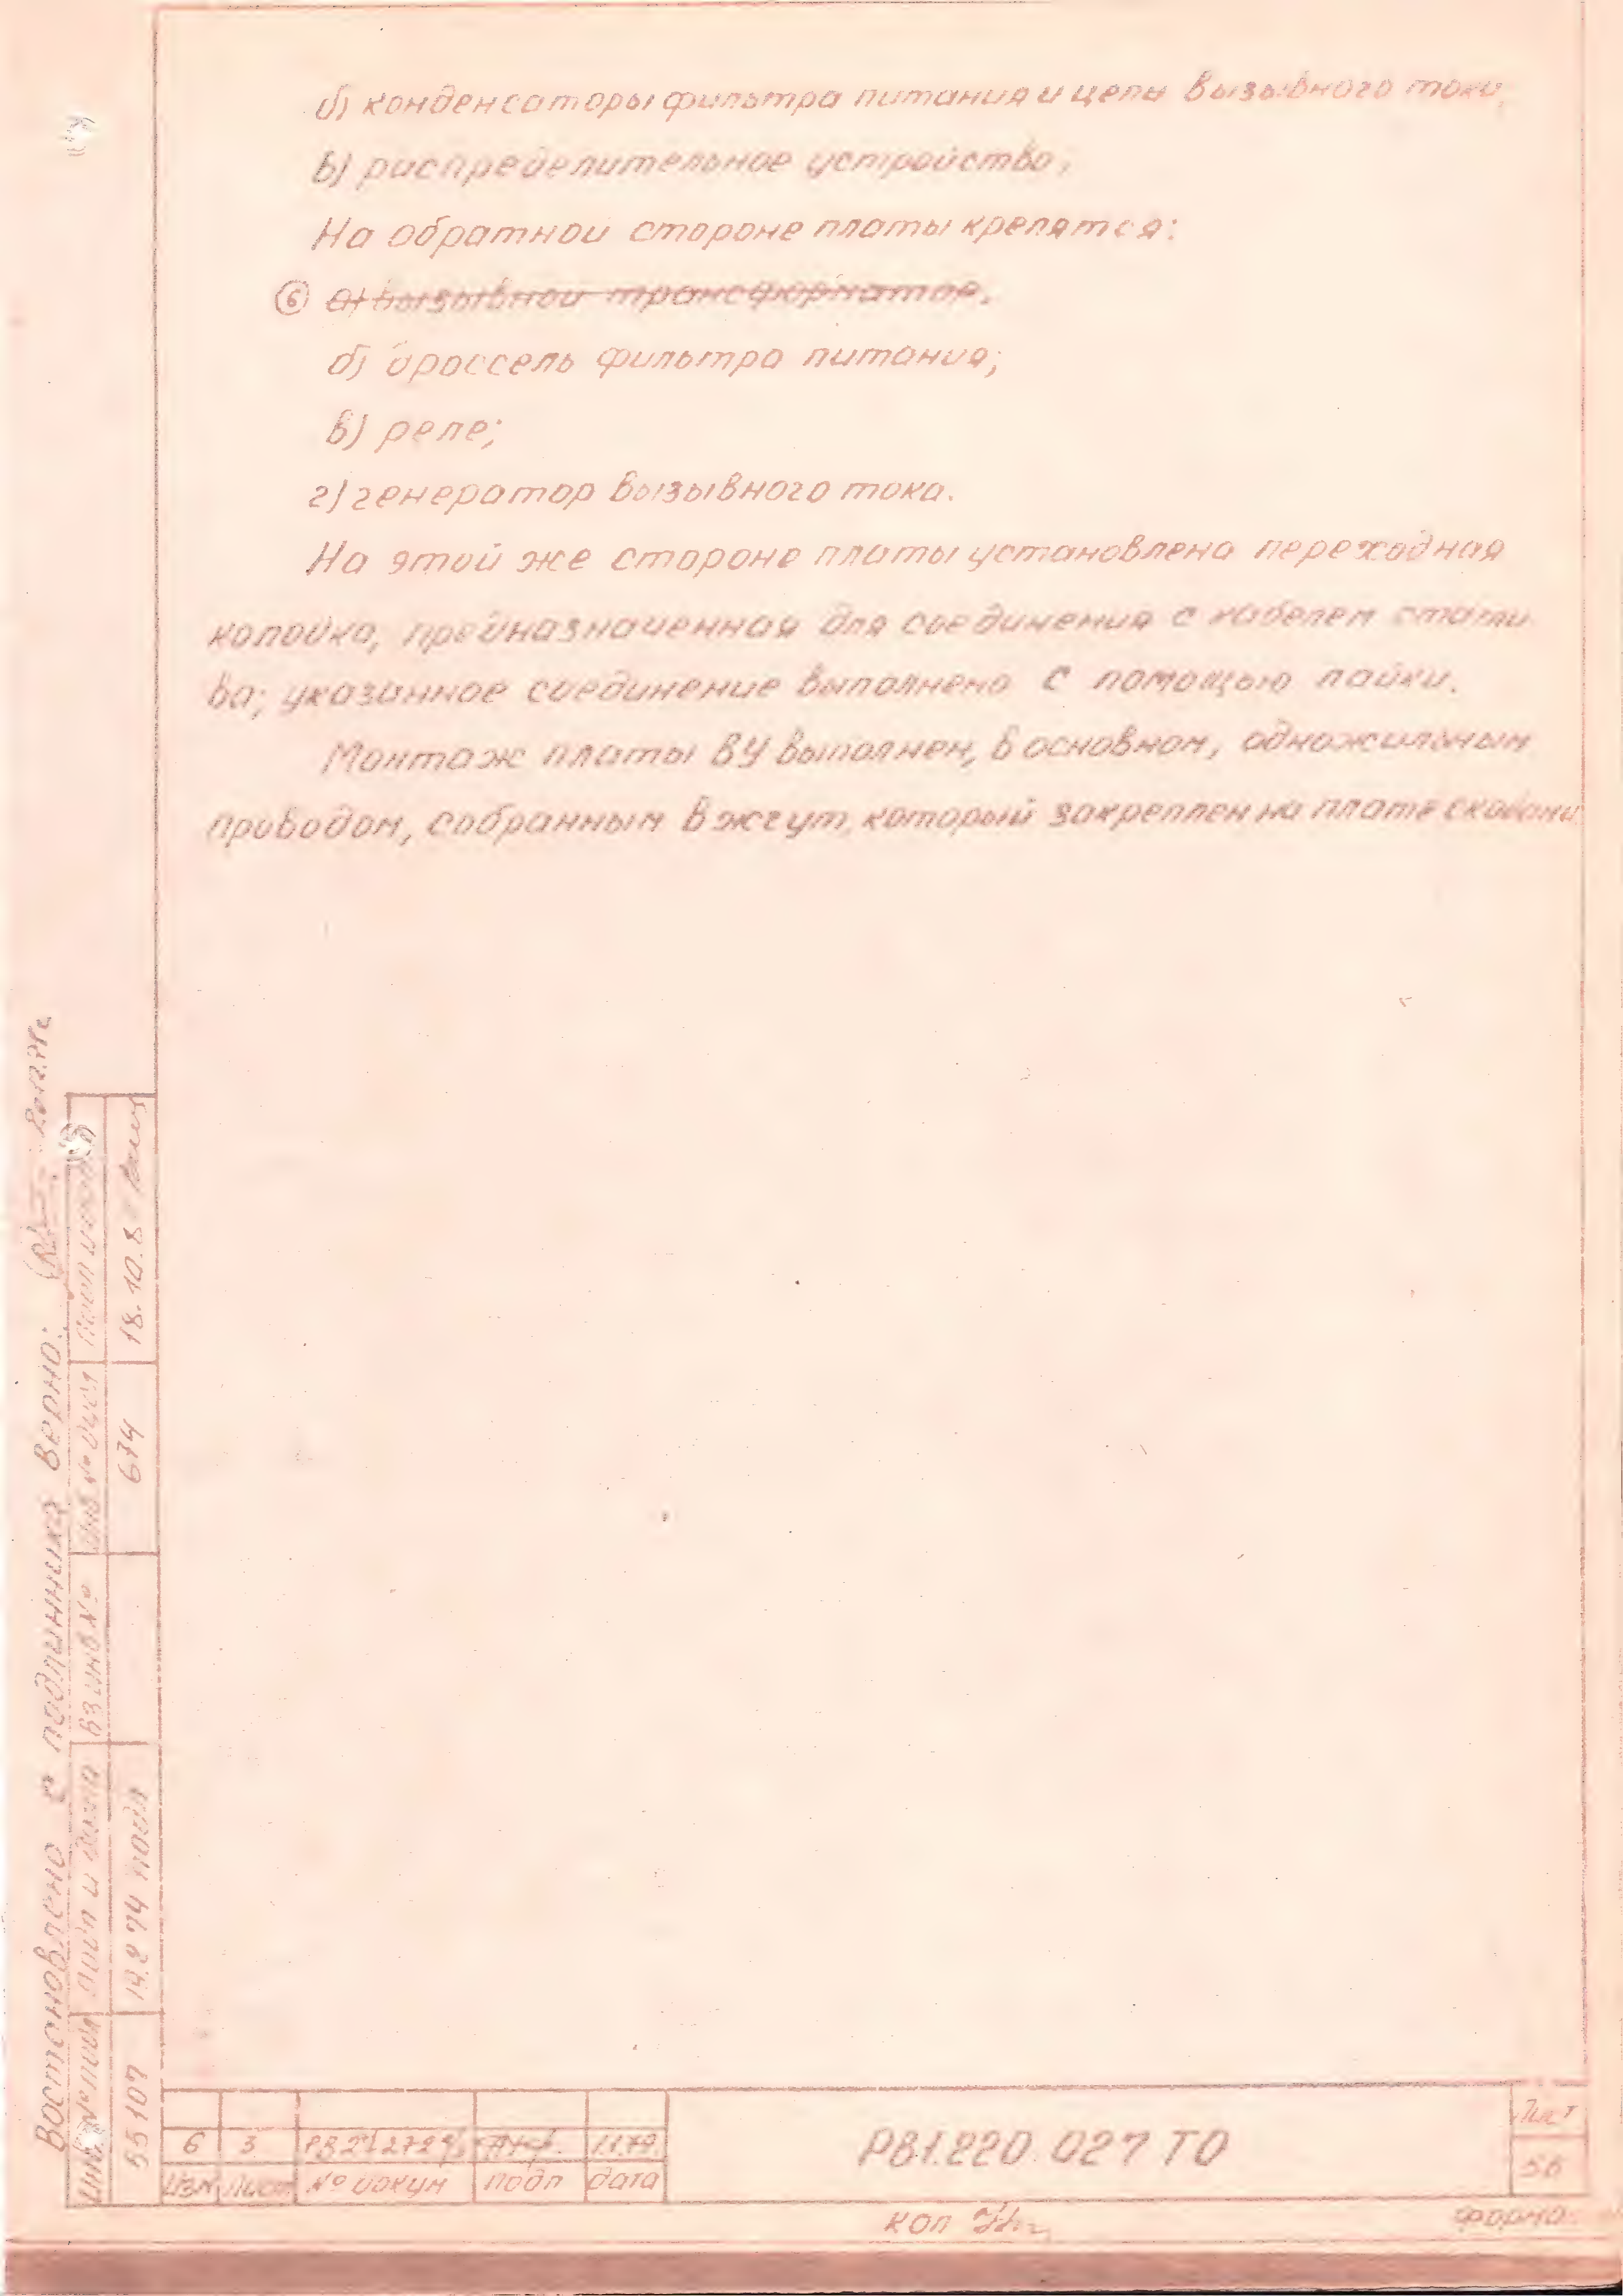 б) конденсаторы фильтра питания и цепи вызывного тока;
в) распределительное устройство;
На обратной стороне платы крепятся:
⑥ а) вызывной трансформатор;
б) дроссель фильтра питания;
в) реле;
г) генератор вызывного тока.
На этой же стороне платы установлена переходная
колодка, предназначенная для соединения с кабелем
ва; указанное соединение выполнено с помощью пайки.
Монтаж платы ВУ выполнен, в основном, одножильным
проводом, собранным в жгут, который закреплен на плате скобами
Востановлено с подлинника верно:
Инв № подл Подп и дата Вз инв № Инв № дубл Подп и дата
55107 19.2 74 подл 674 18.10.8
6 3 1.1.79.
Изм Лист № докум подп дата
РВ1.220.027 ТО
Лист
56
коп
форма